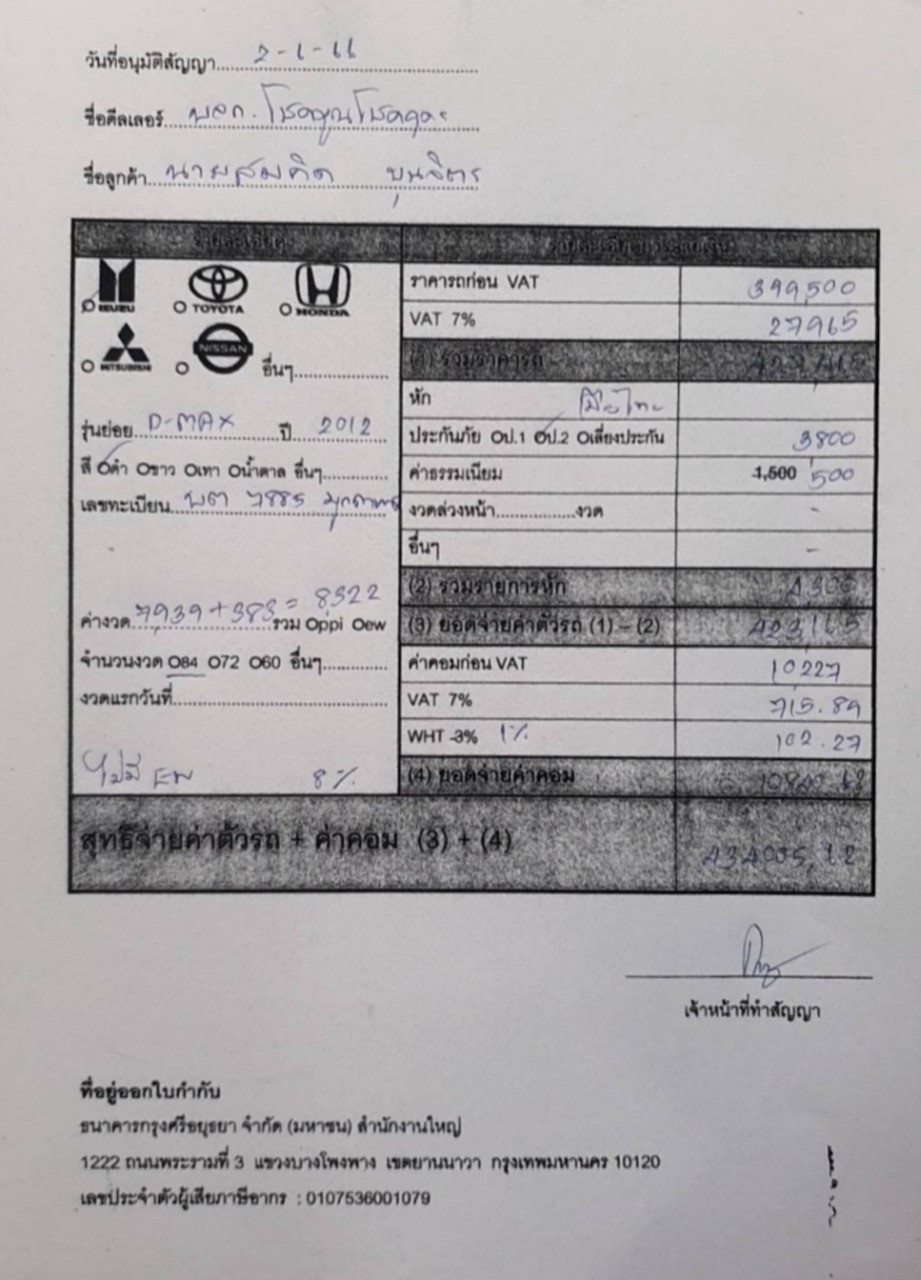 วันที่อนุมัติสัญญา 2-1-66
ชื่อดีลเลอร์ บจก. โชคบุญโชค
ชื่อลูกค้า นายสมคิด บุนจิตร
ISUZU TOYOTA HONDA
MITSUBISHI NISSAN อื่นๆ
รุ่นย่อย D-MAX ปี 2012
สี Oดำ Oขาว Oเทา Oน้ำตาล อื่นๆ
เลขทะเบียน 7885 มุกดาหาร
ค่างวด 7939+383= 8322 รวม Oppi Oew
จำนวนงวด O84 O72 O60 อื่นๆ
งวดแรกวันที่
ไม่มี EW 8%
ราคารถก่อน VAT 399,500
VAT 7% 27965
(1) รวมราคารถ 427,465
หัก
ประกันภัย Oป.1 Oป.2 Oเลี่ยงประกัน 3800
ค่าธรรมเนียม 1,500 500
งวดล่วงหน้า งวด -
อื่นๆ -
(2) รวมรายการหัก 4300
(3) ยอดจ่ายค่าตัวรถ (1) – (2) 423,165
ค่าคอมก่อน VAT 10227
VAT 7% 715.89
WHT 3% 1% 102.27
(4) ยอดจ่ายค่าคอม 10840.62
สุทธิจ่ายค่าตัวรถ + ค่าคอม (3) + (4) 434005,62
เจ้าหน้าที่ทำสัญญา
ที่อยู่ออกใบกำกับ
ธนาคารกรุงศรีอยุธยา จำกัด (มหาชน) สำนักงานใหญ่
1222 ถนนพระรามที่ 3 แขวงบางโพงพาง เขตยานนาวา กรุงเทพมหานคร 10120
เลขประจำตัวผู้เสียภาษีอากร : 0107536001079